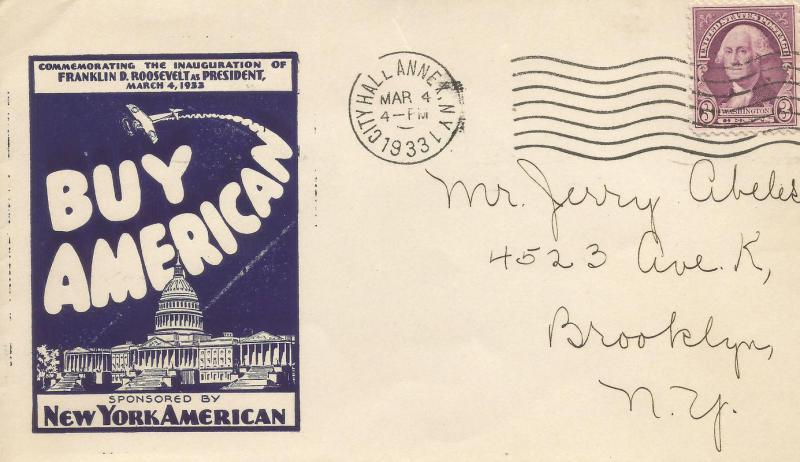 COMMEMORATING THE INAUGURATION OF
FRANKLIN D. ROOSEVELT AS PRESIDENT,
MARCH 4, 1933
BUY
AMERICAN
SPONSORED BY
NEW YORK AMERICAN
CITY HALL ANNEX, N.Y.
MAR 4
4-PM
1933
UNITED STATES POSTAGE
3 WASHINGTON 3
CENTS
Mr. Jerry Abeles
4523 Ave. K,
Brooklyn,
N.Y.